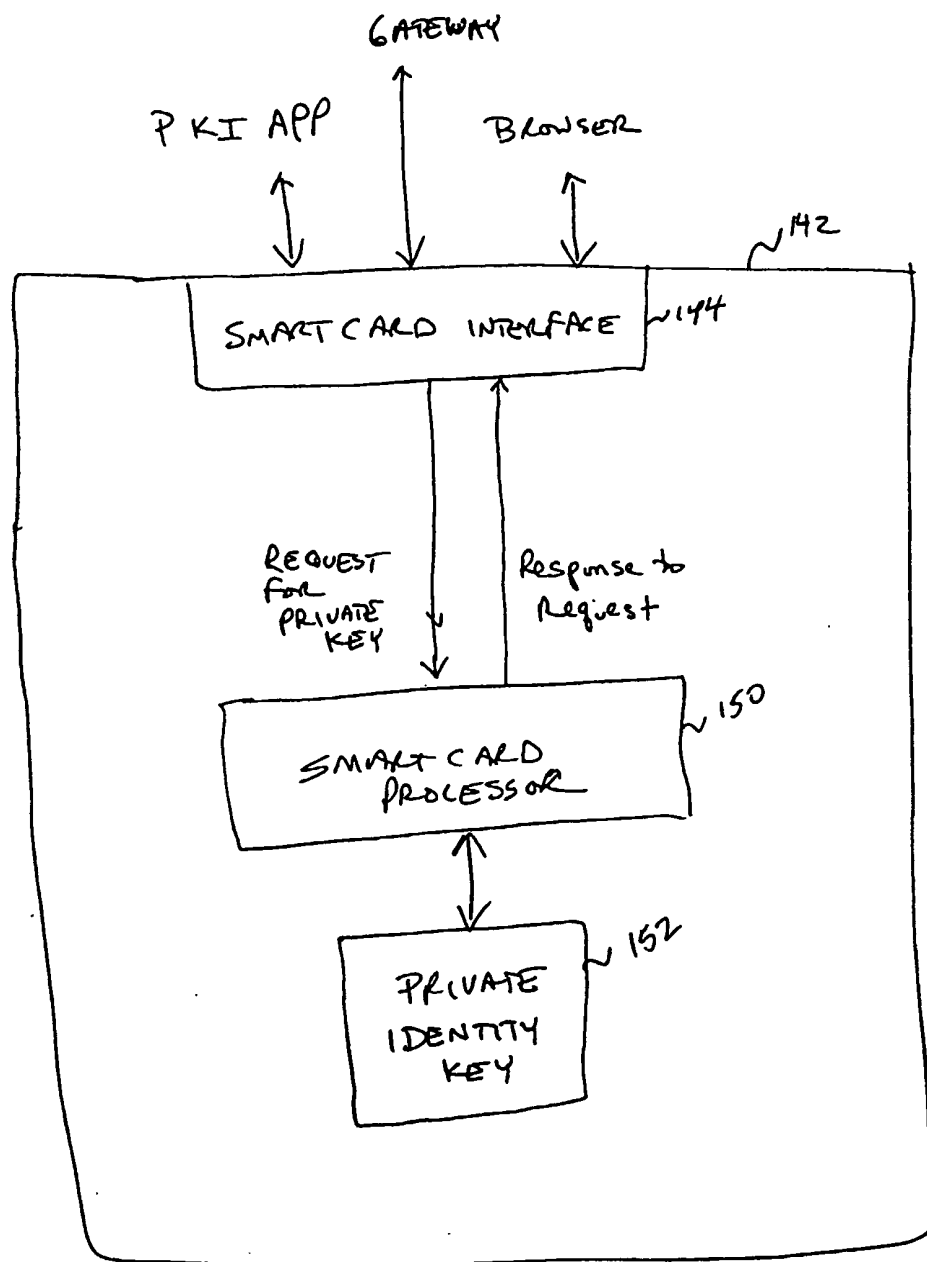 GATEWAY
PKI APP
BROWSER
142
SMART CARD INTERFACE
144
REQUEST
FOR
PRIVATE
KEY
Response to
Request
150
SMART CARD
PROCESSOR
152
PRIVATE
IDENTITY
KEY